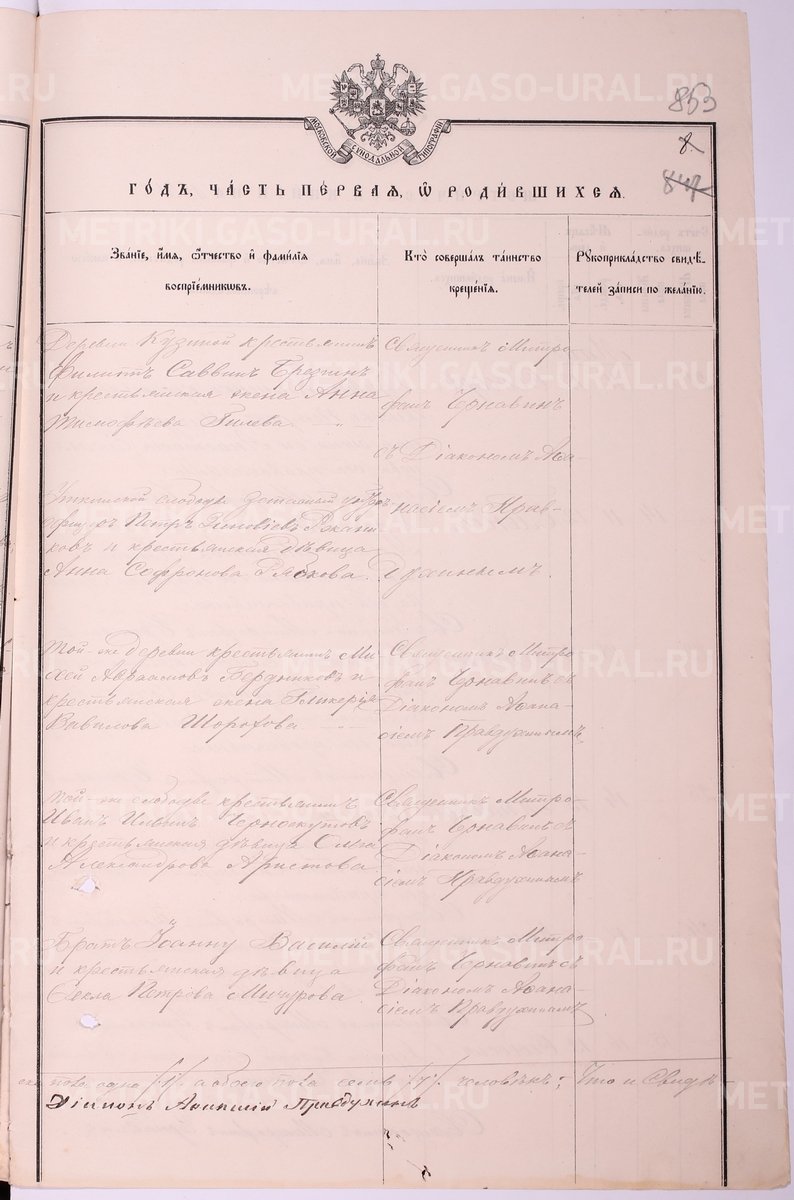 METRIKI.GASO-URAL.RU
853
8.
847
МОСКОВСКОЙ СѴНОДАЛЬНОЙ ТИПОГРАФІИ
ГО́ДЪ, ЧА́СТЬ ПЕ́РВАЯ, Ѡ҆ РОДИ́ВШИХСЯ.
Зва́нїе, и҆́мя, ѻ҆́тчество и҆ фами́лїя воспрїе́мникωвъ.
Кто̀ соверша́лъ та́инство креще́нїя.
Рꙋкоприкла́дство свидѣ́телей за́писи по жела́нїю.
Деревни Кузиной крестьянинъ
Филиппъ Саввинъ Брезгинъ
и крестьянская жена Анна
Тимофѣева Гилева.
Священникъ Митро-
фанъ Чернавинъ
съ Діакономъ Аѳа-
насіемъ Прав-
духинымъ.
Уткинской слободы
Петръ Зиновіевъ
ковъ и крестьянская дѣвица
Анна Софронова Рябкова.
Той-же деревни крестьянинъ Ми-
хей Авраамовъ Бердниковъ и
крестьянская жена Гликерія
Вавилова Шорохова
Священникъ Митро-
фанъ Чернавинъ съ
Діакономъ Аѳана-
сіемъ Правдухинымъ
Той-же слободы крестьянинъ
Иванъ Ильинъ Черноскутовъ
и крестьянская дѣвица
Александрова Аристова
Священникъ Митро-
фанъ Чернавинъ съ
Діакономъ Аѳана-
сіемъ Правдухинымъ
Братъ Іоанну Василій
и крестьянская дѣвица
Ѳекла Петрова Мичурова.
Священникъ Митро-
фанъ Чернавинъ съ
Діакономъ Аѳана-
сіемъ Правдухинымъ
пола одно /1/ а обоего пола семь /7/ человѣкъ; Что и Свидѣ-
Діаконъ Аѳанасій Правдухинъ